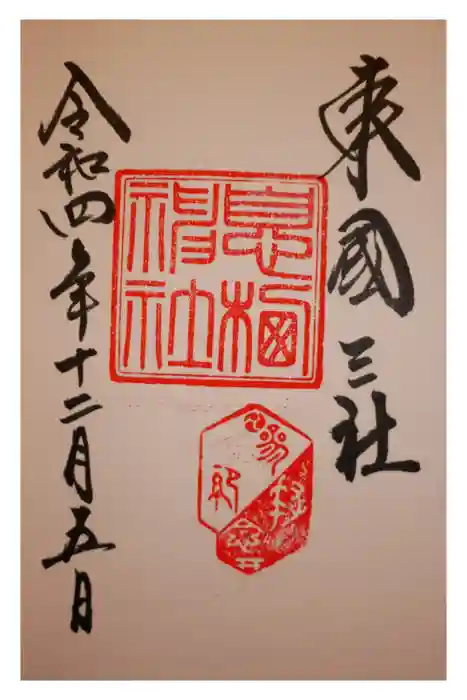 東國三社
息栖
神社
令和四年十二月五日